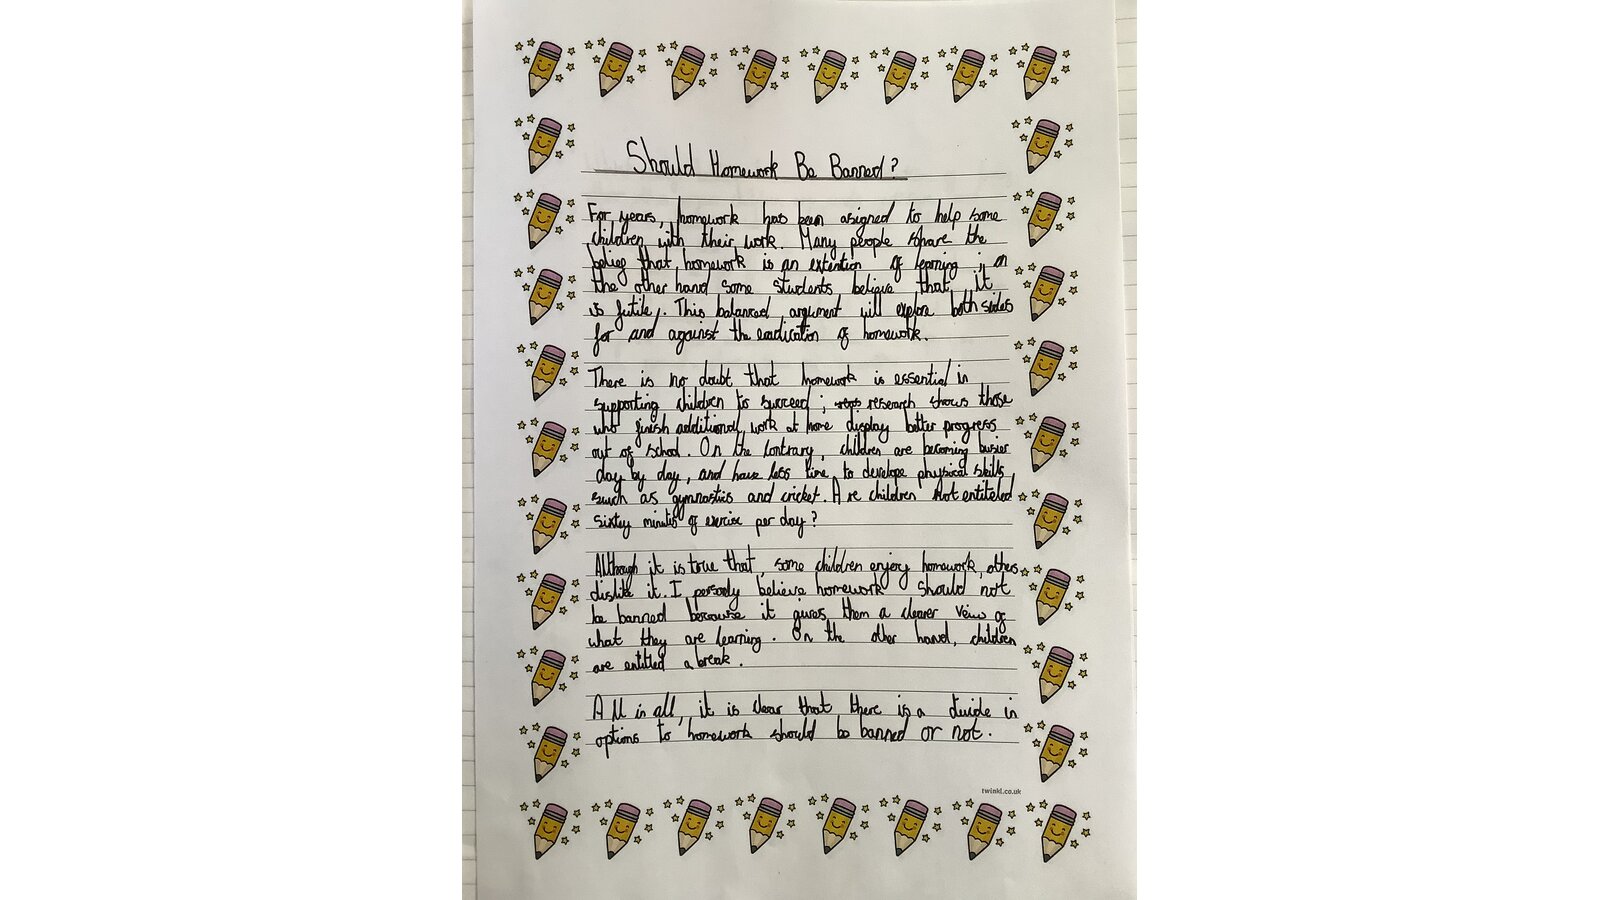 Should Homework Be Banned?
For years, homework has been asigned to help some
children with their work. Many people share the
belief that homework is an extention of learning ; on
the other hand some students believe that it
is futile,. This balanced argument will explore both sides
for and against the eradication of homework.
There is no doubt that homework is essential in
supporting children to succeed ; research shows those
who finish additional work at home display better progress
out of school. On the contrary, children are becoming busier
day by day, and have less time to develope physical skills
such as gymnastics and cricket. Are children not entiteled
sixty minutes of exercise per day?
Although it is true that, some children enjoy homework, others
dislike it. I personly believe homework should not
be banned because it gives them a clearer veiw of
what they are learning. On the other hand, children
are entitled a break.
All in all, it is clear that there is a divide in
options to homework should be banned or not.
twinkl.co.uk